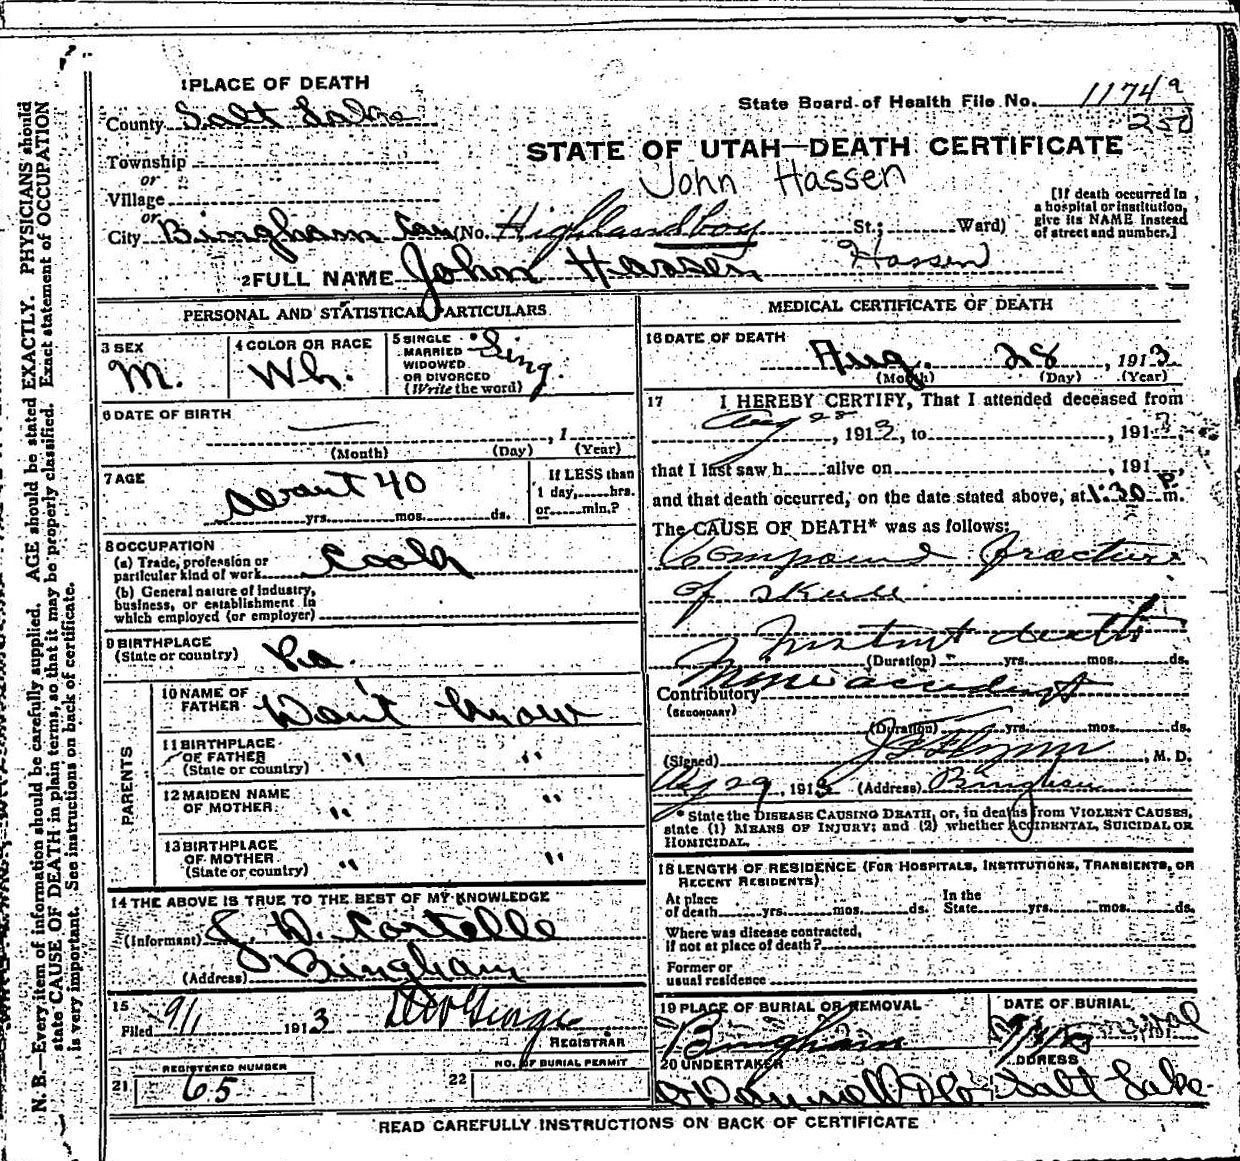 1 PLACE OF DEATH
County Salt Lake
State Board of Health File No. 1174
STATE OF UTAH—DEATH CERTIFICATE
Township
or
John Hassen
Village
or
[If death occurred in a hospital or institution, give its NAME instead of street and number.]
City Bingham Can (No. Highland boy St.; Ward)
2 FULL NAME John Hassen Hassen
PERSONAL AND STATISTICAL PARTICULARS
3 SEX M.
4 COLOR OR RACE Wh.
5 SINGLE MARRIED WIDOWED OR DIVORCED (Write the word) Sing.
6 DATE OF BIRTH
(Month) (Day) , 1 (Year)
7 AGE about 40
yrs. mos. ds.
If LESS than 1 day, hrs. or min.?
8 OCCUPATION
(a) Trade, profession or particular kind of work Cook
(b) General nature of industry, business, or establishment in which employed (or employer)
9 BIRTHPLACE
(State or country)
PARENTS
10 NAME OF FATHER Don't know
11 BIRTHPLACE OF FATHER (State or country) " "
12 MAIDEN NAME OF MOTHER " "
13 BIRTHPLACE OF MOTHER (State or country) " "
14 THE ABOVE IS TRUE TO THE BEST OF MY KNOWLEDGE
(Informant) J. D. Costello
(Address) Bingham
15
Filed 9/1 1913
REGISTRAR
REGISTERED NUMBER
21 65
NO. OF BURIAL PERMIT
22
MEDICAL CERTIFICATE OF DEATH
16 DATE OF DEATH
Aug. 28, 1913
(Month) (Day) (Year)
17 I HEREBY CERTIFY, That I attended deceased from
Aug 28, 1913, to , 191
that I last saw h alive on , 191 ,
and that death occurred, on the date stated above, at 1:30 P. m.
The CAUSE OF DEATH* was as follows:
Compound fracture
of skull
Instant death
(Duration) yrs. mos. ds.
Contributory Mine accident
(SECONDARY)
(Duration) yrs. mos. ds.
(Signed) J F Flynn, M. D.
Aug 29, 1913 (Address) Bingham
* State the DISEASE CAUSING DEATH, or, in deaths from VIOLENT CAUSES, state (1) MEANS OF INJURY; and (2) whether ACCIDENTAL, SUICIDAL OR HOMICIDAL.
18 LENGTH OF RESIDENCE (FOR HOSPITALS, INSTITUTIONS, TRANSIENTS, OR RECENT RESIDENTS)
At place of death yrs. mos. ds. In the State yrs. mos. ds.
Where was disease contracted,
If not at place of death?
Former or
usual residence
19 PLACE OF BURIAL OR REMOVAL
Bingham
DATE OF BURIAL
20 UNDERTAKER
O'Donnell & Co
ADDRESS
Salt Lake
READ CAREFULLY INSTRUCTIONS ON BACK OF CERTIFICATE
N. B.—Every item of information should be carefully supplied. AGE should be stated EXACTLY. PHYSICIANS should
state CAUSE OF DEATH in plain terms, so that it may be properly classified. Exact statement of OCCUPATION
is very important. See instructions on back of certificate.